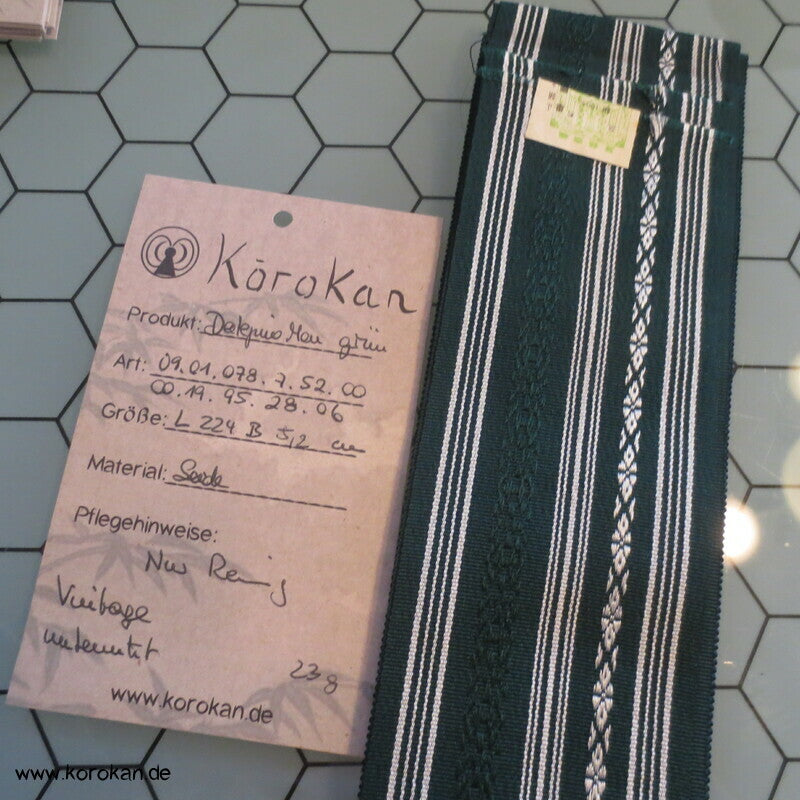 Korokan
Produkt: grün
Art: 09.01.078.7.52.00
00.19.95.28.06
Größe: L 224 B 5,2 cm
Material: Seide
Pflegehinweise:
Nur Reinig
Vintage
unbenutzt
23 g
www.korokan.de
www.korokan.de